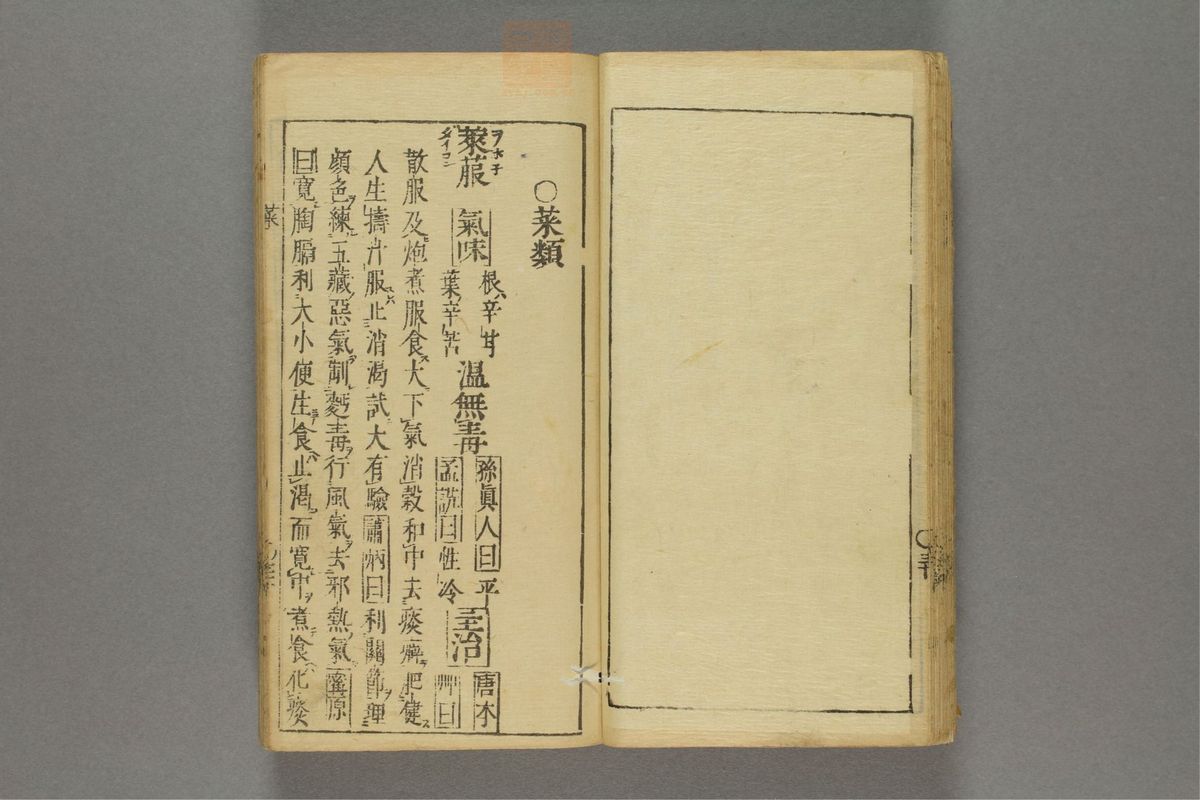 ○菜類
萊菔 氣味 根辛甘 葉辛苦 温無毒 孫眞人曰平 孟詵曰性冷 主治 唐本艸曰
ダイコン
散服及炮煮服食大下氣消穀和中去痰癖肥健
人生擣汁服止消渴試大有驗蕭炳曰利關節理
顔色練五藏惡氣制麪毒行風氣去邪熱氣寗原
曰寛胸膈利大小便生食止渴而寛中煮食化痰
菜